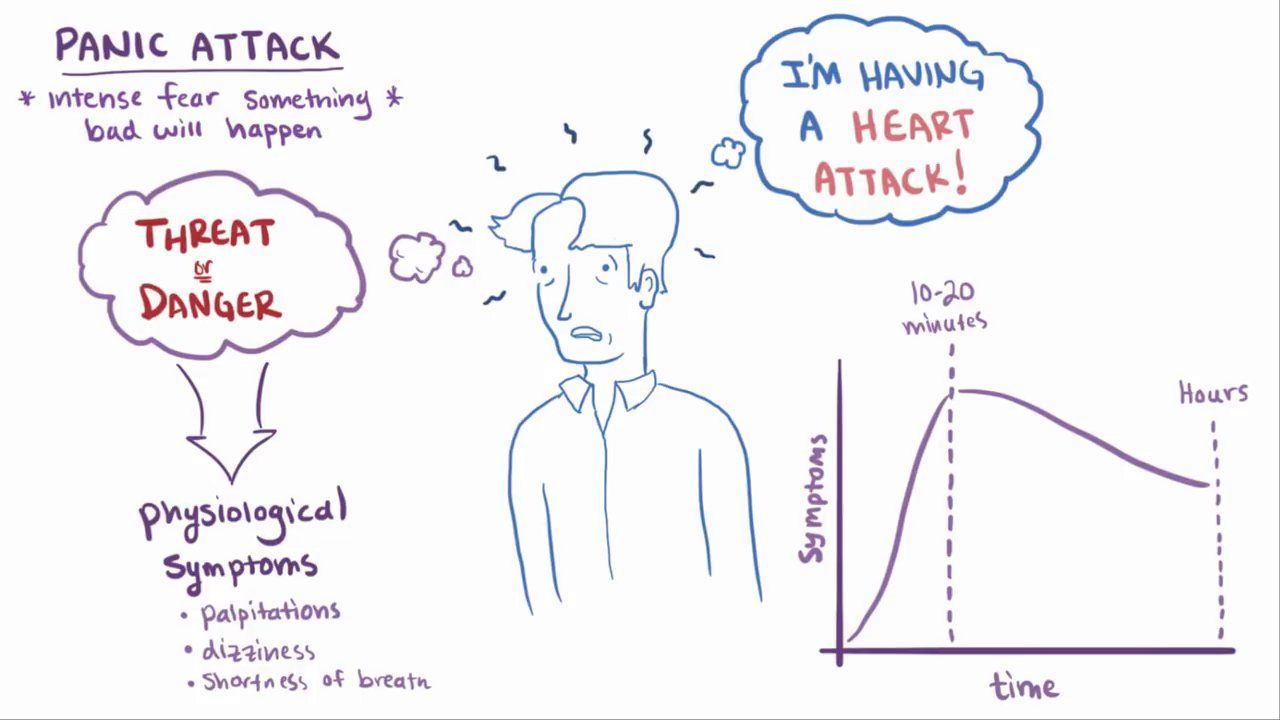 PANIC ATTACK
* intense fear something *
bad will happen
THREAT
or
DANGER
physiological
symptoms
• palpitations
• dizziness
• shortness of breath
I'M HAVING
A HEART
ATTACK!
10-20
minutes
Hours
symptoms
time